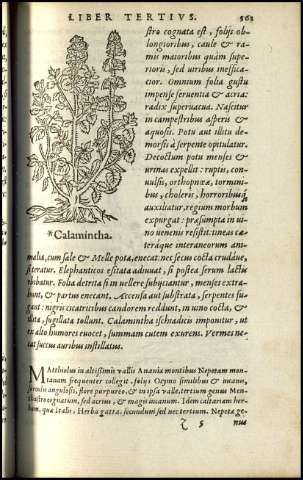 LIBER TERTIVS. 363
stro cognata est, folijs ob-
longioribus, caule & ra-
mis maioribus quàm supe-
rioris, sed uiribus inefficá-
cior. Omnium folia gustu
impense feruentia & acria:
radix superuacua. Nascitur
in campestribus asperis &
aquosis. Potu aut illitu de-
morsis à serpente opitulatur.
Decoctum potu menses &
urinas expellit: ruptis, con-
uulsis, orthopnœæ, tormini-
bus, choleris, horroribusq́;
auxiliatur, regium morbum
expurgat: præsumpta in ui-
no uenenis resistit: tineas cæ-
teráque interaneorum ani-
*Calamintha.
malia, cum sale & Melle pota, enecat: nec secus cocta crudáue,
si teratur. Elephanticos esitata adiuuat, si postea serum lactis
bibatur. Folia detrita si in uellere subijciantur, menses extra-
hunt, & partus enecant. Accensa aut substrata, serpentes fu-
gant: nigris cicatricibus candorem reddunt, in uino cocta, &
illata, sugillata tollunt. Calamintha ischiadicis imponitur, ut
ex alto humores euocet, summam cutem exurens. Vermes ne-
cat succus auribus instillatus.
Matthiolus in altissimis vallis Ananiæ montibus Nepetam mon-
tanam frequenter collegit, folijs Ocymo similibus &
angulosis, flore purpureo. & in ipsa valle, tertium genus Men-
thastro cognatum, sed acrius, & magis incanum. Idem
quæ Italis, Herba gatta, secundum sed nec tertium. Nepeta ge-
5 nus